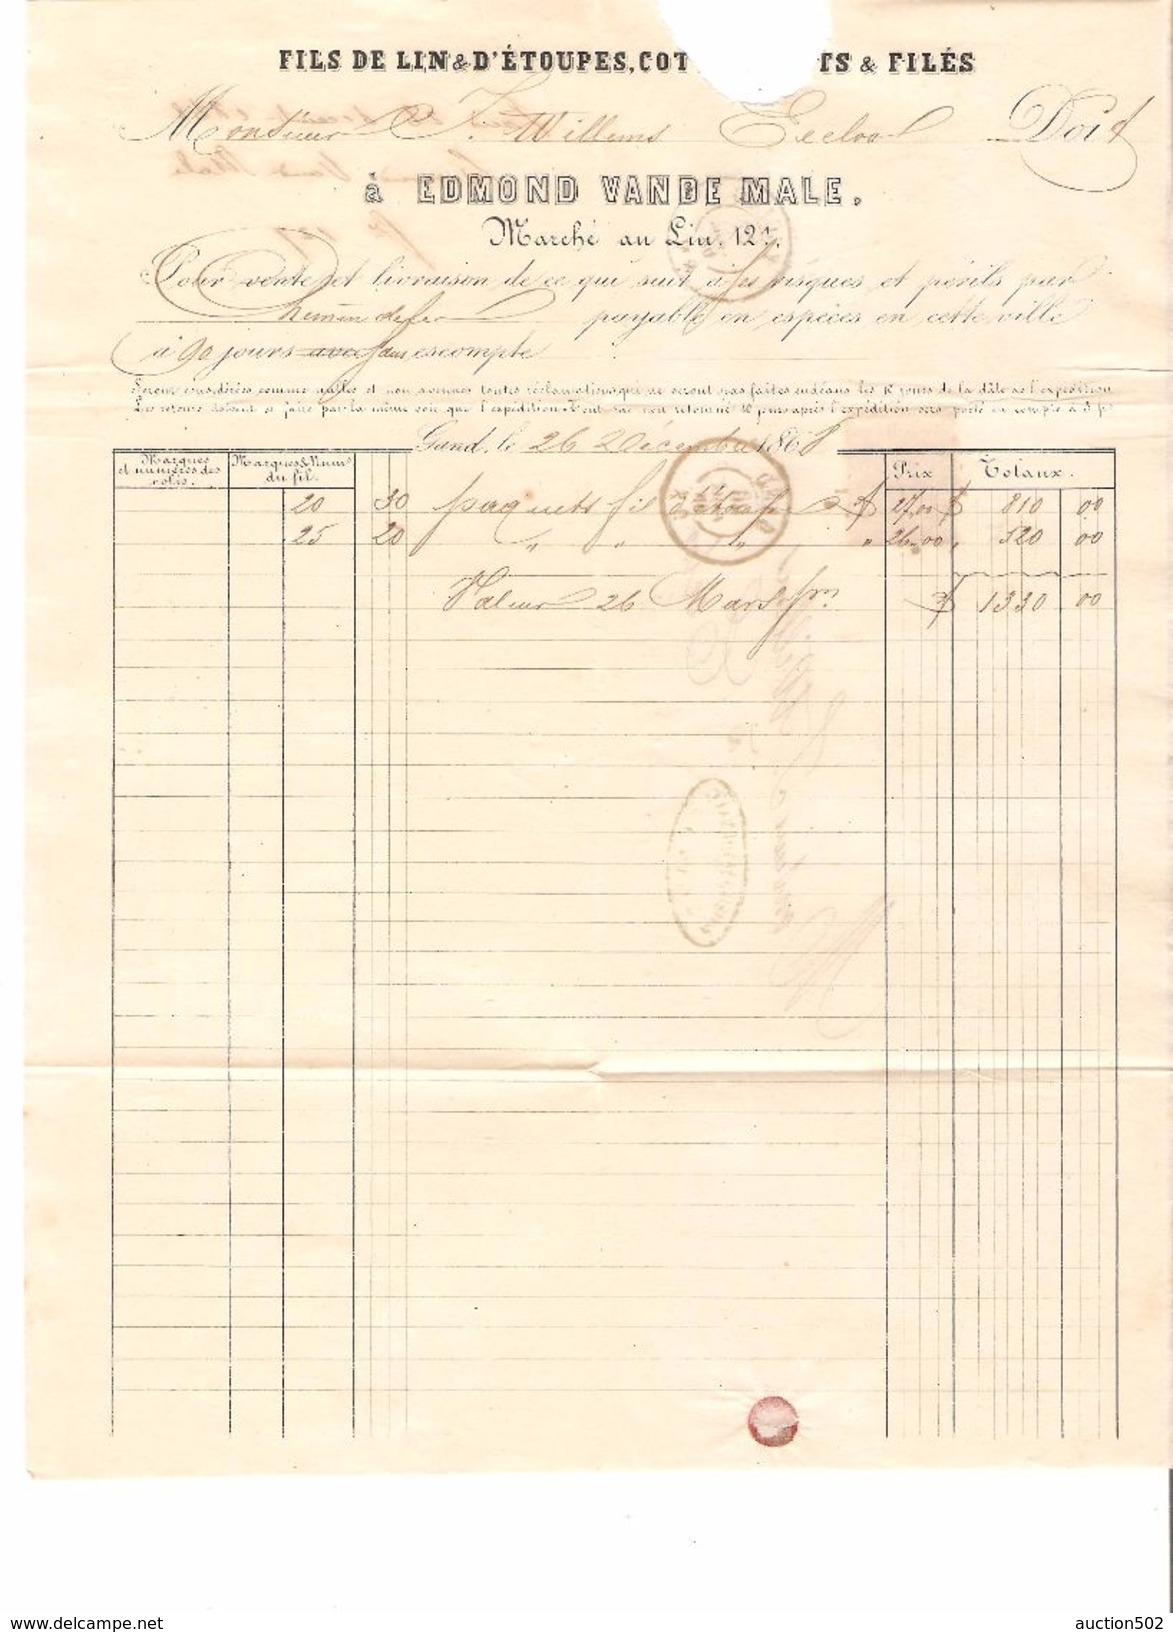 FILS DE LIN & D'ÉTOUPES, COT TS & FILÉS
Monsieur J. Willems Eecloo Doit
à EDMOND VANDE MALE.
Marché au Lin, 12
Pour vente et livraison de ce qui suit à ses risques et périls par
Chemin de fer payable en espèces en cette ville
à 90 jours avec sans escompte
Seront considérées comme nulles et non avenues toutes réclamations qui ne seront pas faites endéans les jours de la date de l'expédition.
Les retours doivent se faire par la même voie que l'expédition. Tout sac non retourné 10 jours après l'expédition sera porté en compte à 3 f
Gand, le 26 Décembre 1868
Marques et numéros des colis. Marques & Num du fil. Prix Totaux.
20 30 paquets fil d'étoupe f 27,00 f 810 00
25 20 " " " " 26,00 " 520 00
Valeur 26 Mars pm f 1330 00
auction502